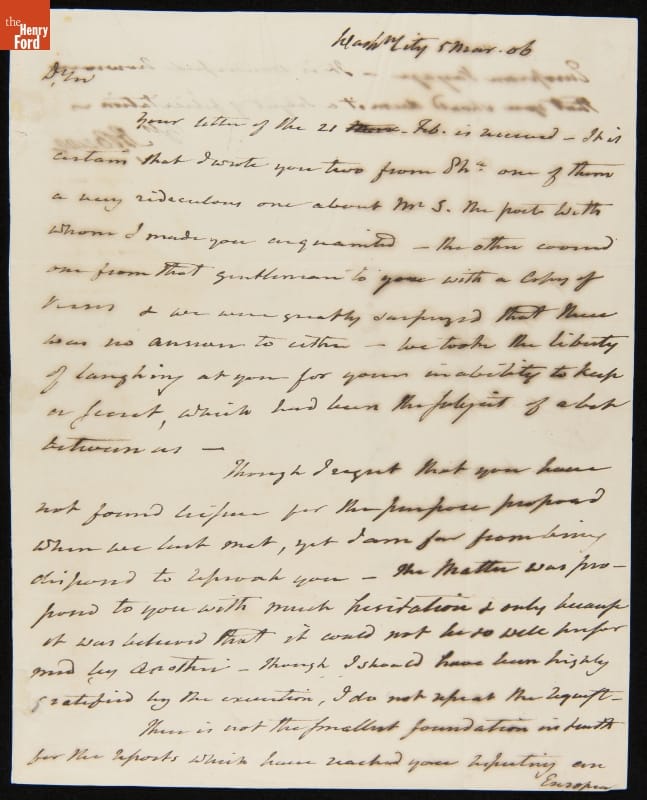 the
Henry
Ford
Washn City 5 Mar. 06
Dr Sir
Your letter of the 21 Feb. is received — It is
certain that I wrote you two from Pha. one of them
a very ridiculous one about Mr S. the poet with
whom I made you acquainted — the other covered
one from that gentleman to you with a Copy of
verses & we were greatly surprized that there
was no answer to either — we took the liberty
of laughing at you for your inability to keep
a secret, which had been the subject of a bet
between us —
Though I regret that you have
not found leisure for the purpose proposed
when we last met, yet I am far from being
disposed to reproach you — the Matter was pro-
posed to you with much hesitation & only because
it was believed that it could not be so well perfor
med by another — though I should have been highly
gratified by the execution, I do not repeat the request —
There is not the smallest foundation in truth
for the reports which have reached you respecting an
European